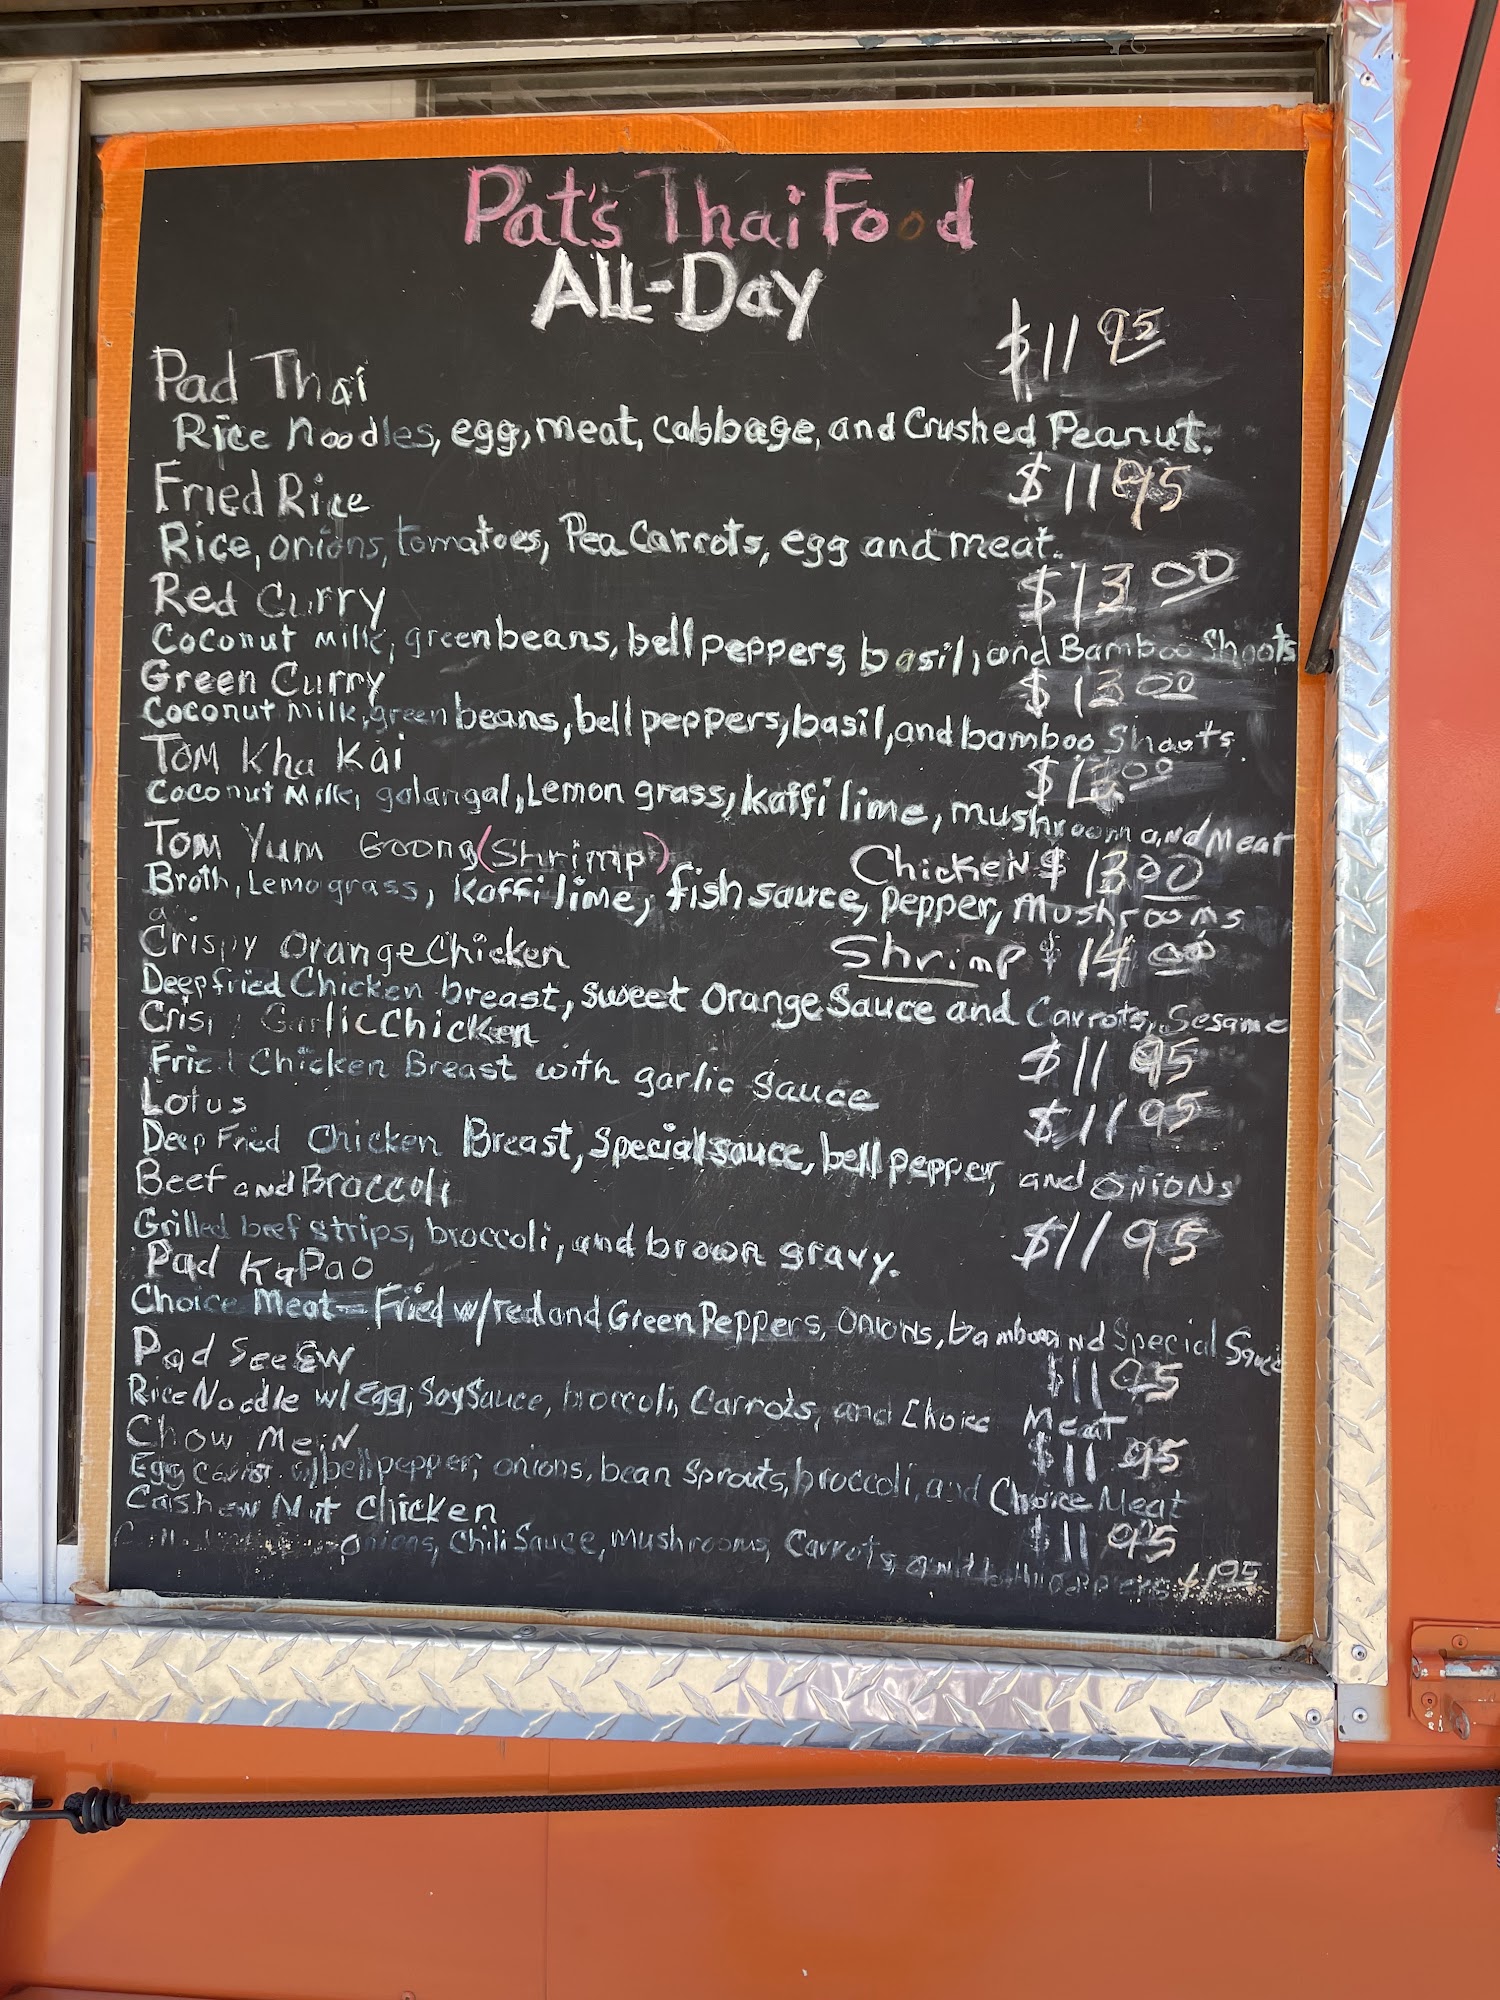 Pat's Thai Food
ALL-Day
Pad Thai $11 95
Rice Noodles, egg, meat, cabbage, and Crushed Peanut.
Fried Rice $11 95
Rice, onions, tomatoes, Pea Carrots, egg and meat.
Red Curry $13 00
Coconut Milk, green beans, bell peppers, basil, and Bamboo Shoots
Green Curry $13 00
Coconut Milk, green beans, bell peppers, basil, and bamboo Shoots.
Tom Kha Kai $13 00
Coconut Milk, galangal, Lemon grass, kaffi lime, mushroom and Meat
Tom Yum Goong (Shrimp) Chicken $13 00
Broth, Lemograss, kaffi lime, fish sauce, pepper, Mushrooms
Shrimp $14 00
Crispy Orange Chicken
Deep fried Chicken breast, sweet Orange Sauce and Carrots, Sesame
Garlic Chicken $11 95
Chicken Breast with garlic sauce
Lotus $11 95
Deep Fried Chicken Breast, Special sauce, bell pepper, and ONIONs
Beef and Broccoli $11 95
Grilled beef strips, broccoli, and brown gravy.
Pad KaPao
Choice Meat - Fried w/ red and Green Peppers, Onions, bamboo and Special Sauce
Pad SeeEW $11 95
Rice Noodle w/ Egg, Soy Sauce, broccoli, Carrots, and Choice Meat
Chow MeiN $11 95
Egg w/ bell pepper, onions, bean Sprouts, broccoli, and Choice Meat
Cashew Nut chicken $11 95
onions, Chili Sauce, mushrooms, Carrots